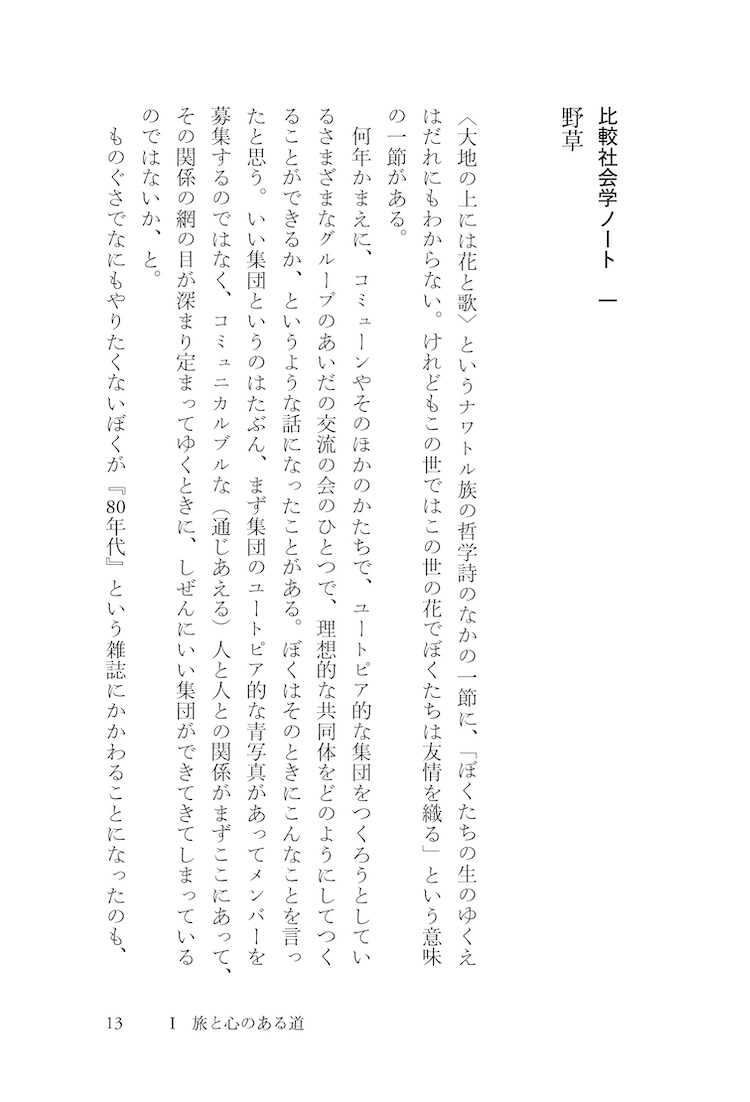 比較社会学ノート　一
野草
〈大地の上には花と歌〉というナワトル族の哲学詩のなかの一節に、「ぼくたちの生のゆくえ
はだれにもわからない。けれどもこの世ではこの世の花でぼくたちは友情を織る」という意味
の一節がある。
　何年かまえに、コミューンやそのほかのかたちで、ユートピア的な集団をつくろうとしてい
るさまざまなグループのあいだの交流の会のひとつで、理想的な共同体をどのようにしてつく
ることができるか、というような話になったことがある。ぼくはそのときにこんなことを言っ
たと思う。いい集団というのはたぶん、まず集団のユートピア的な青写真があってメンバーを
募集するのではなく、コミュニカルブルな（通じあえる）人と人との関係がまずここにあって、
その関係の網の目が深まり定まってゆくときに、しぜんにいい集団ができてきてしまっている
のではないか、と。
　ものぐさでなにもやりたくないぼくが『80年代』という雑誌にかかわることになったのも、
13　Ⅰ　旅と心のある道